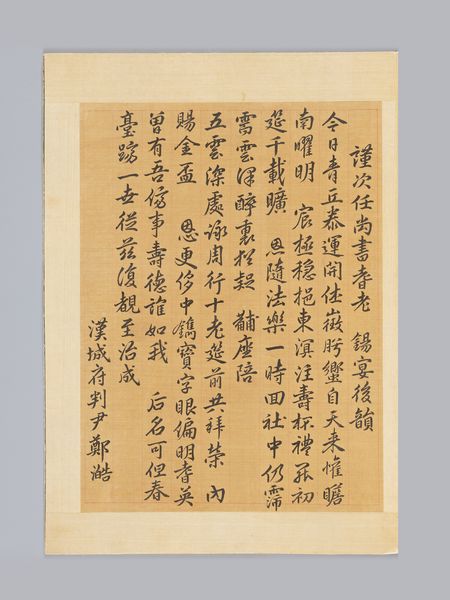 謹次任尚書耆老 錫宴後韻
今日青丘泰運開佳徵肹蠁自天来惟瞻
南曜明 宸極穏挹東溟注壽杯禮罷初
筵千載曠 恩隨法樂一時回社中仍霈
需雲澤醉裏猶疑 黼座陪
五雲深處詠周行十老筵前共拜榮 內
賜金盃 恩更侈中鐫寶字眼偏明耆英
曾有吾儕事壽德誰如我 后名可但春
臺躋一世從玆復覩至治成
漢城府判尹鄭澔